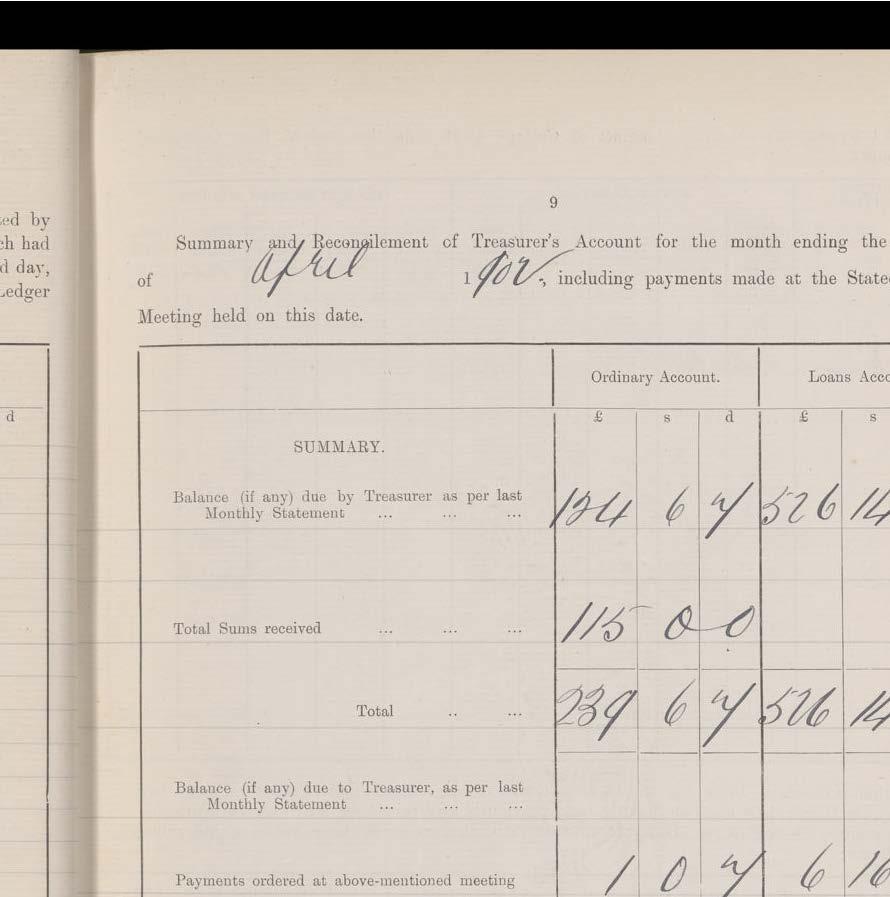 9
ted by
ch had
d day,
Ledger
d
Summary and Reconcilement of Treasurer's Account for the month ending the
of April 1902, including payments made at the State
Meeting held on this date.
Ordinary Account. Loans Acco
£ s d £ s
SUMMARY.
Balance (if any) due by Treasurer as per last
Monthly Statement ... ... ... 124 6 7 526 14
Total Sums received ... ... ... 115 0 0
Total .. ... 239 6 7 526 14
Balance (if any) due to Treasurer, as per last
Monthly Statement ... ... ...
Payments ordered at above-mentioned meeting 1 0 7 6 16